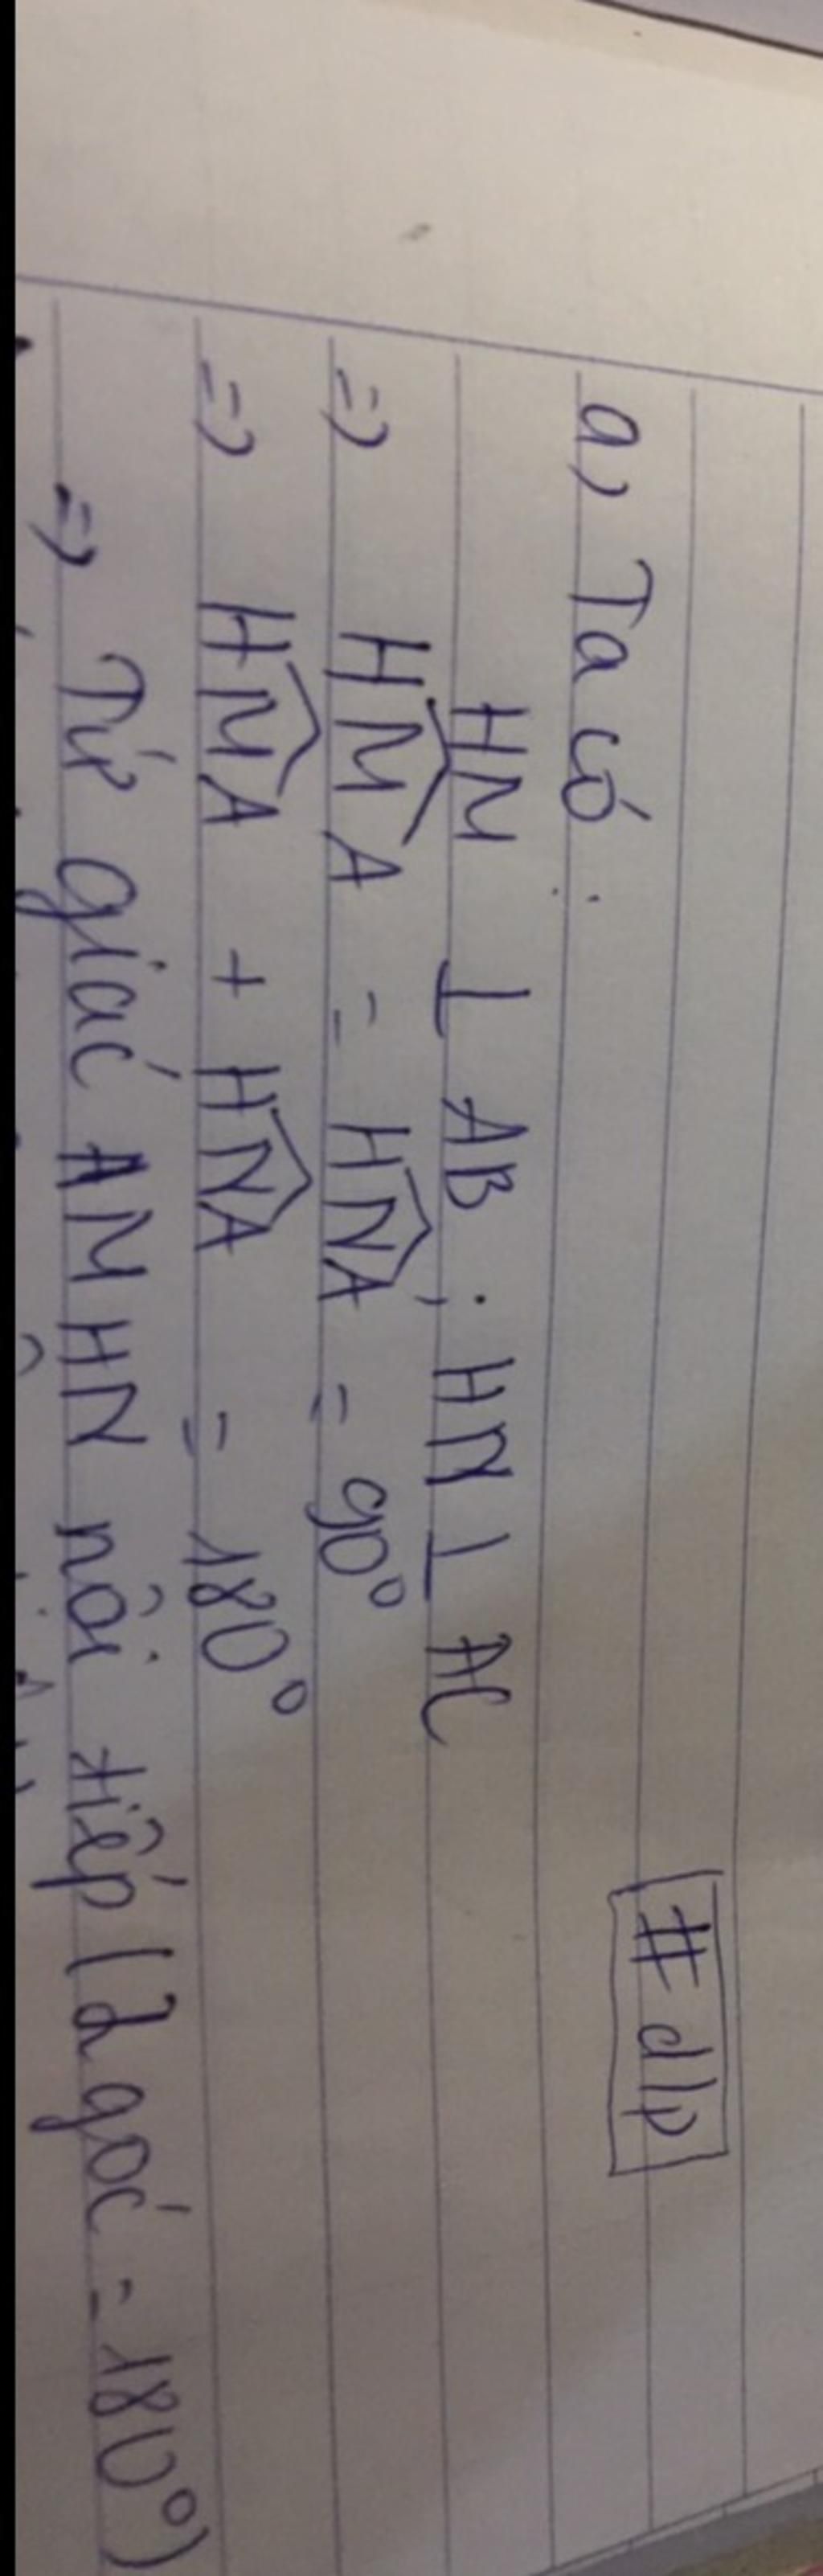 #dlp
a) Ta có:
HM ⊥ AB; HN ⊥ AC
=> \widehat{HMA} = \widehat{HNA} = 90°
=> \widehat{HMA} + \widehat{HNA} = 180°
=> Tứ giác AMHN nội tiếp (2 góc = 180°)